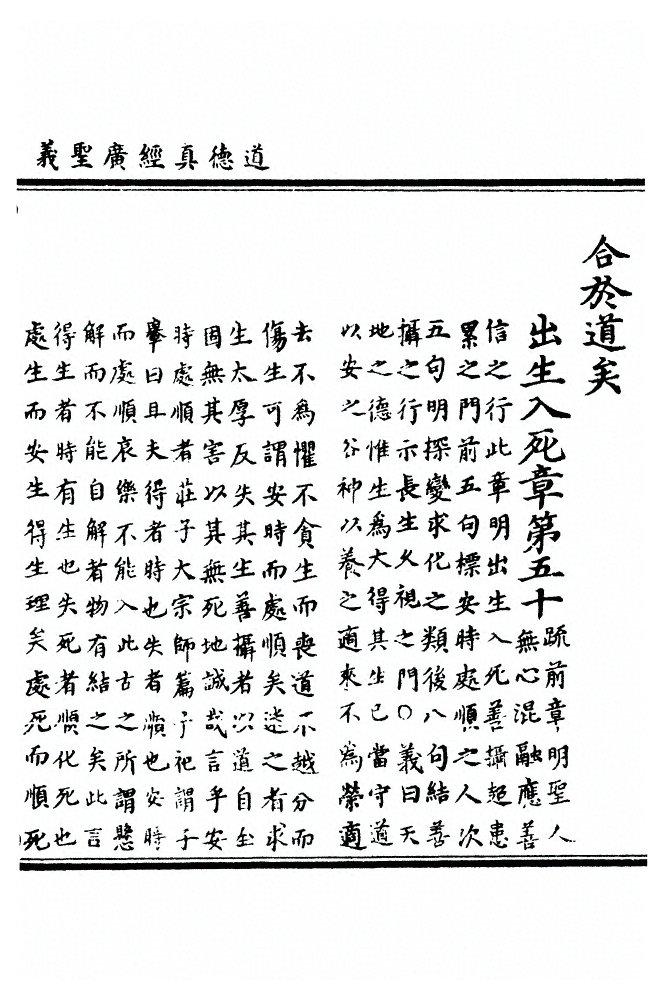 道德真經廣聖義
合於道矣
出生入死章第五十
疏前章明聖人
無心混融應善
信之行此章明出生入死善攝超患
累之門前五句標安時處順之人次
五句明探變求化之類後八句結善
攝之行示長生久視之門〇義曰天
地之德惟生為大得其生已當守道
以安之谷神以養之適來不為榮適
去不為懼不貪生而喪道不越分而
傷生可謂安時而處順矣迷之者求
生太厚反失其生善攝者以道自全
固無其害以其無死地誠哉言乎安
時處順者莊子大宗師篇子祀謂子
轝曰且夫得者時也失者順也安時
而處順哀樂不能入此古之所謂懸
解而不能自解者物有結之矣此言
得生者時有生也失死者順化死也
處生而安生得生理矣處死而順死